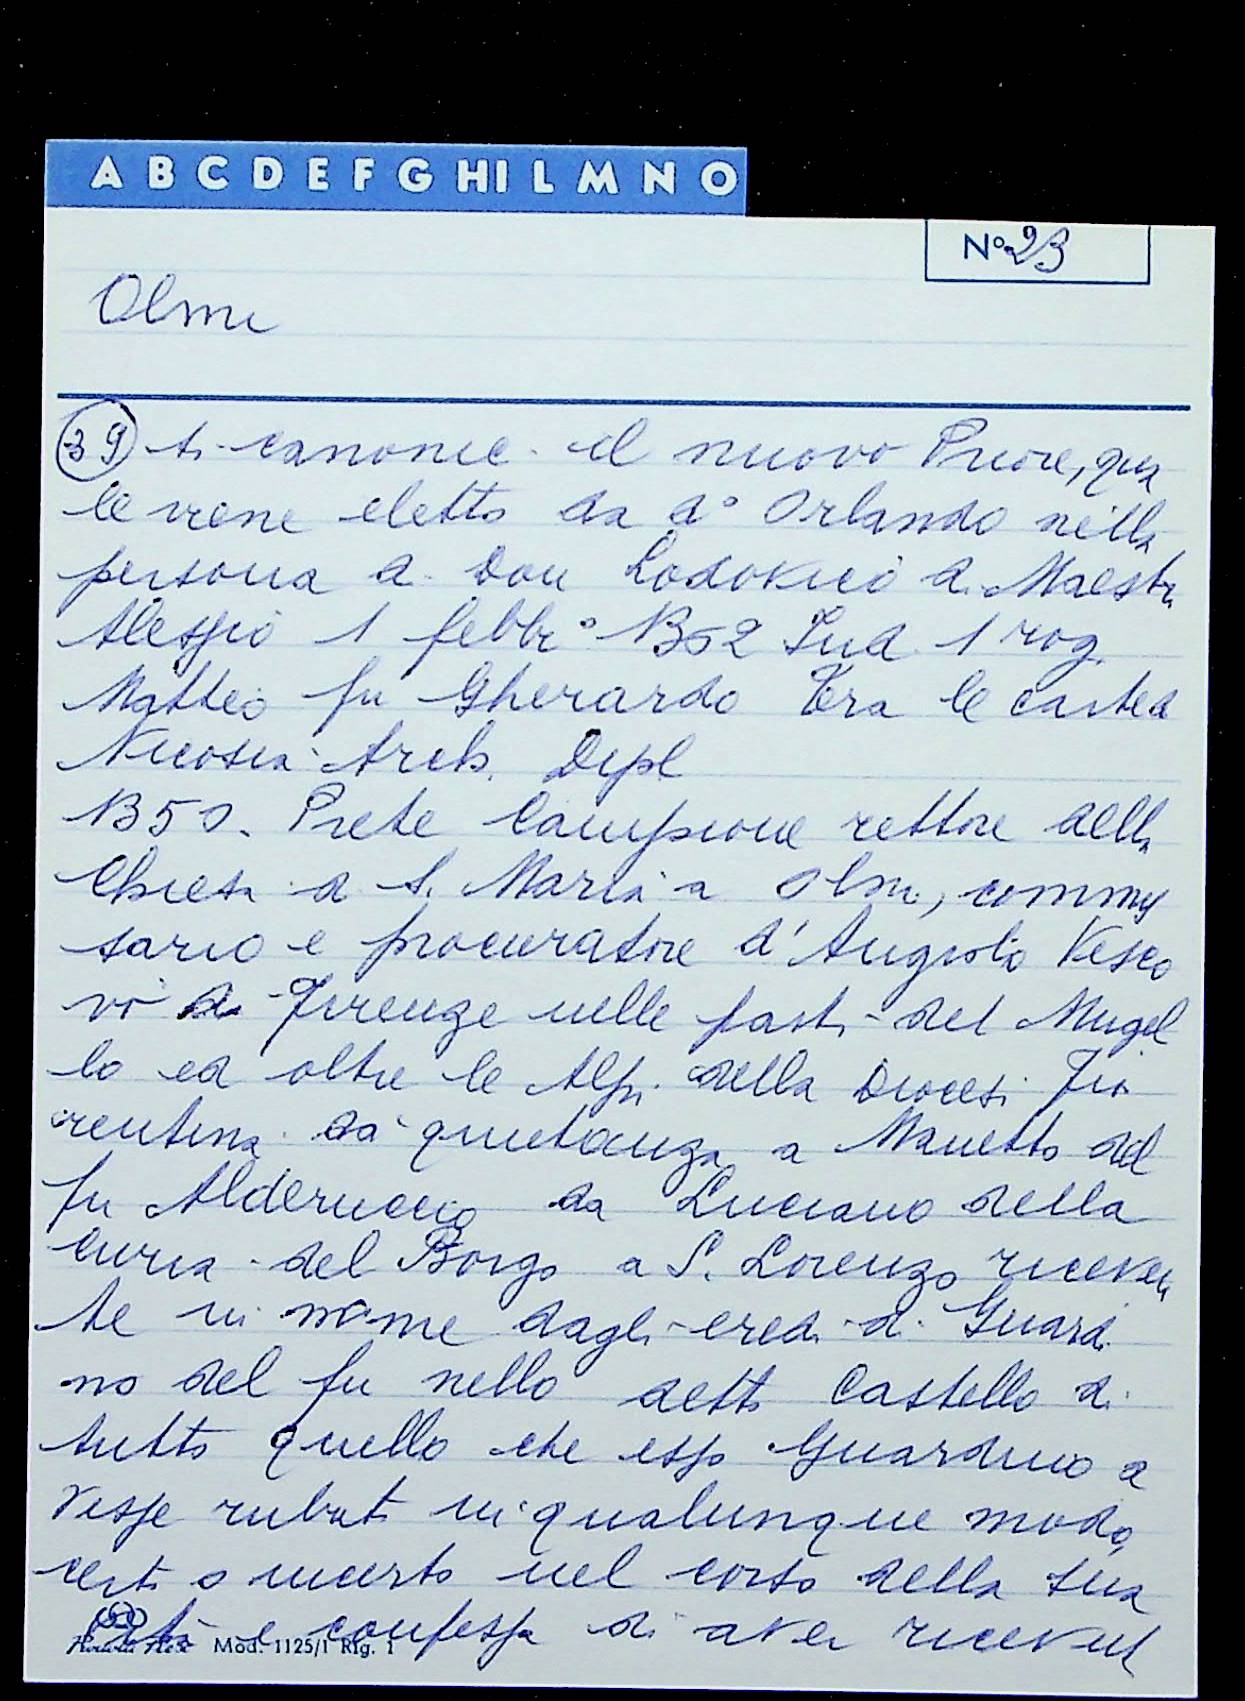 A B C D E F G H I L M N O
N° 23
Olmi
39 ti canonic. il nuovo Priore, qua
le viene eletto da d° Orlando nella
persona di Don Lodovico di Maestr
Alessio 1 febbr° 1362 Ind. 1 rog.
Matteo fu Gherardo Tra le carte d
Nicosia Arch. Dipl
1350. Prete Campione rettore della
Chiesa di S. Maria a Olmi, commis
sario e procuratore d'Angiolo Vesco
vo di Firenze nelle parti del Mugel
lo ed oltre le Alpi della Diocesi Fio
rentina dà quietanza a Manetto del
fu Alderuccio da Luciano della
curia del Borgo a S. Lorenzo riceven
te in nome dagli eredi di Guardi
no del fu nello detto Castello di
tutto quello che esso Guardino a
vesse rubato in qualunque modo,
certo o incerto nel corso della sua
vita e confessa di aver ricevut
Mod. 1125/1 Rig. 1